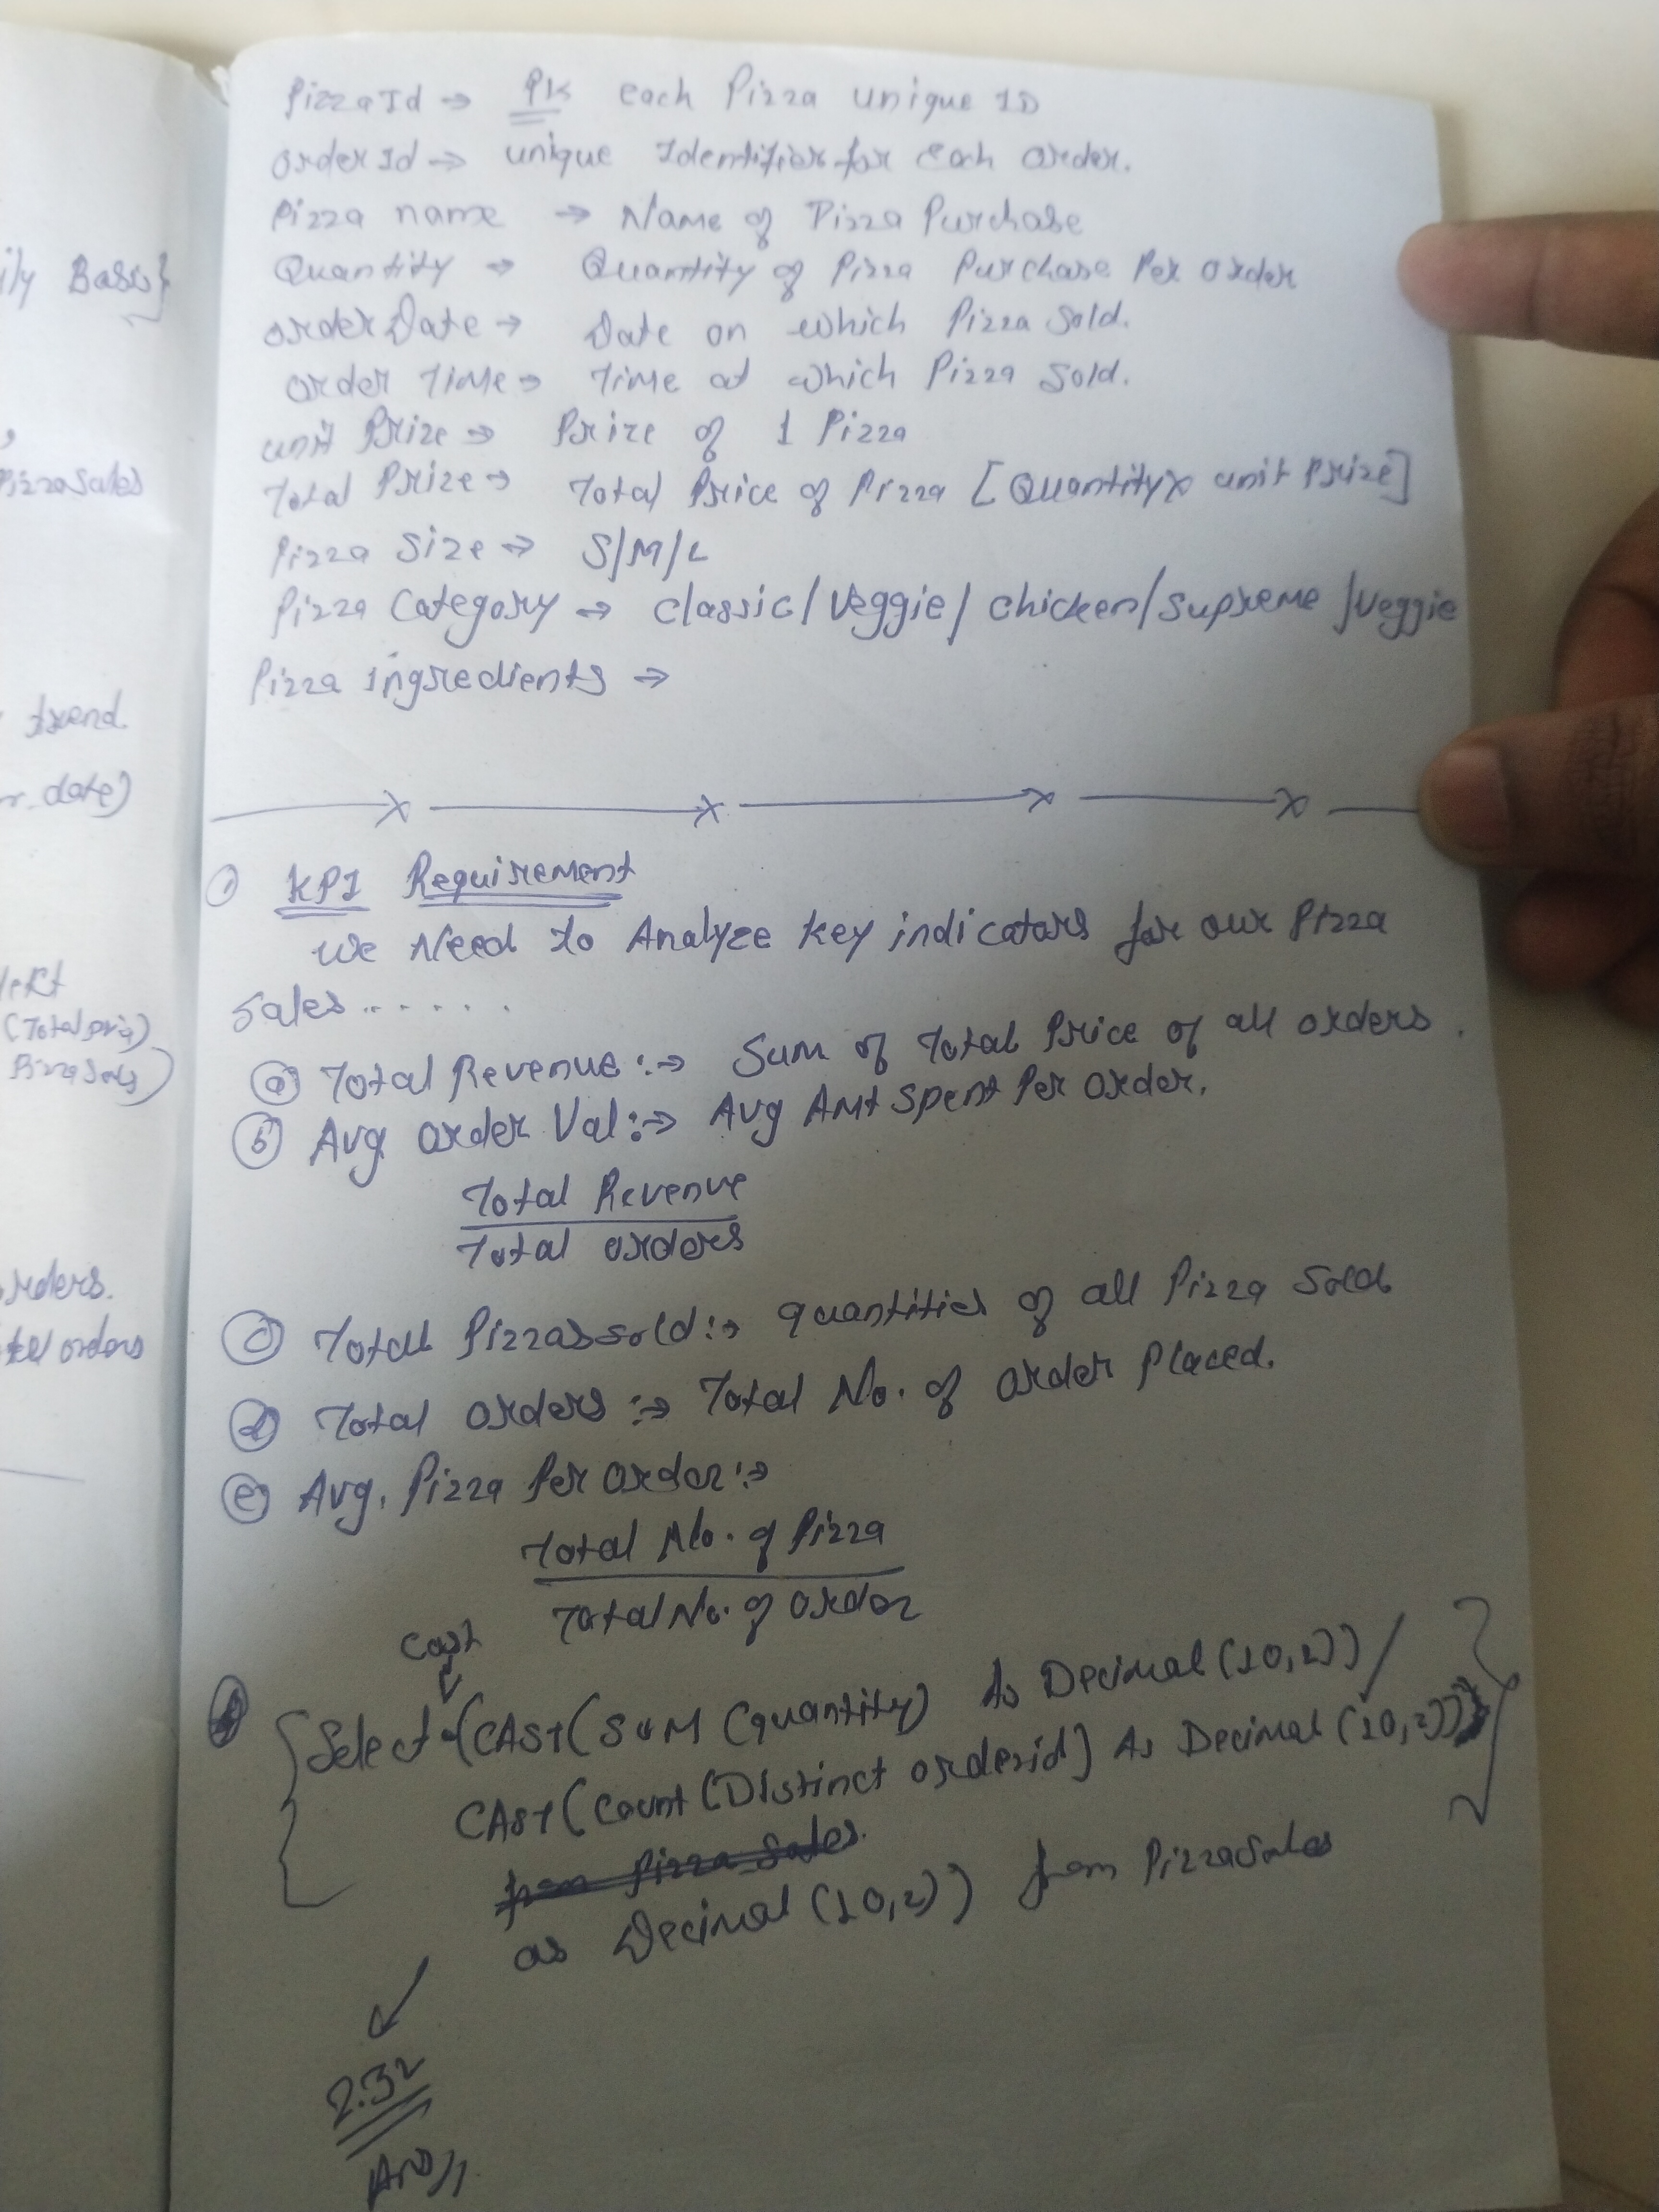 ily Basis}
,
Pizzasales
trend.
r. date)
(Total pric)
Pizza Sales)
rders.
tal orders
PizzaId → PK each Pizza unique ID
order Id → unique Identifier for each order.
Pizza name → Name of Pizza Purchase
Quantity → Quantity of Pizza Purchase Per order
orderDate → Date on which Pizza Sold.
order Time → Time at which Pizza Sold.
unit Prize → Prize of 1 Pizza
Total Prize → Total Price of Pizza [Quantity x unit Prize]
Pizza Size → S/M/L
Pizza Category → classic/Veggie/chicken/supreme/veggie
Pizza Ingredients →
① KPI Requirement
We Need to Analyze key indicators for our Pizza
sales......
ⓐ Total Revenue :→ Sum of Total Price of all orders.
ⓑ Avg order Val :→ Avg Amt spent Per order.
Total Revenue
Total orders
ⓒ Total Pizzas sold :→ quantities of all Pizza Sold
ⓓ Total orders :→ Total No. of order Placed.
ⓔ Avg. Pizza Per order :→
Total No. of Pizza
Total No. of order
Cast
{Select (CAST(SUM (quantity) As Decimal (10,2)) /
CAST(Count (Distinct orderid) As Decimal (10,2)))
from Pizza Sales.
as Decimal (10,2)) from PizzaSales
2.32
Ans//